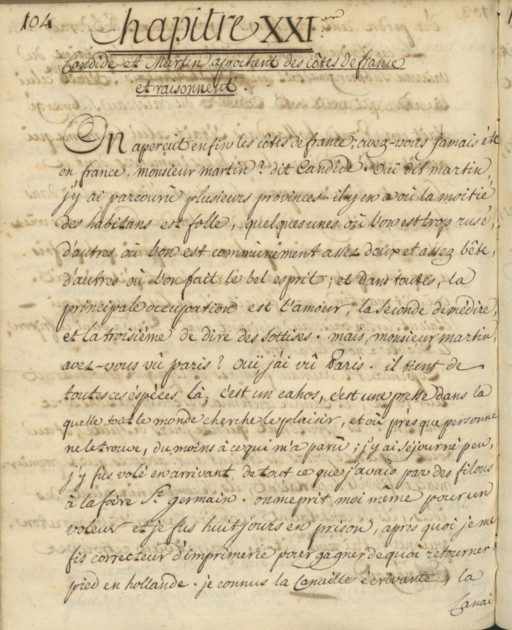 104
Chapitre XXI.eme
Candide et Martin aprochent des côtes de france
et raisonnent.
On aperçut enfin les côtes de france; avez-vous jamais été
en france, monsieur martin? dit Candide. Oüi dit martin,
j'y ai parcouru plusieurs provinces. il y en a où la moitié
des habitans est folle, quelques unes où l'on est trop rusé,
d'autres où l'on est communément assez doux et assez bête,
d'autres où l'on fait le bel esprit; et dans toutes, la
principale occupation est l'amour, la seconde de médire,
et la troisiéme de dire des sottises. mais, monsieur martin,
avez-vous vû paris? Oüi j'ai vû Paris. il tient de
toutes ces éspéces là; c'est un cahos, c'est une presse dans la
quelle tout le monde cherche le plaisir, et où presque personne
ne le trouve, du moins à ce qui m'a parû; j'y ai séjourné peu,
j'y fus volé en arrivant de tout ce que j'avais par des filous
à la foire St. germain. on me prit moi même pour un
voleur et je fus huit jours en prison, après quoi je me
fis correcteur d'imprimerie pour gagner de quoi retourner
pied en hollande. je connus la Canaille écrivante, la
Canai